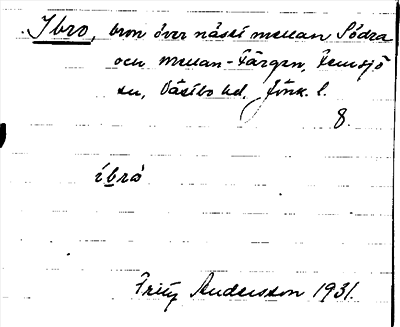 Ybro, bron över näset mellan Södra
och Mellan-Färgen, Femsjö
sn, Västbo hd, Jönk. l.
8.
íbrò
Fritz Andersson 1931.